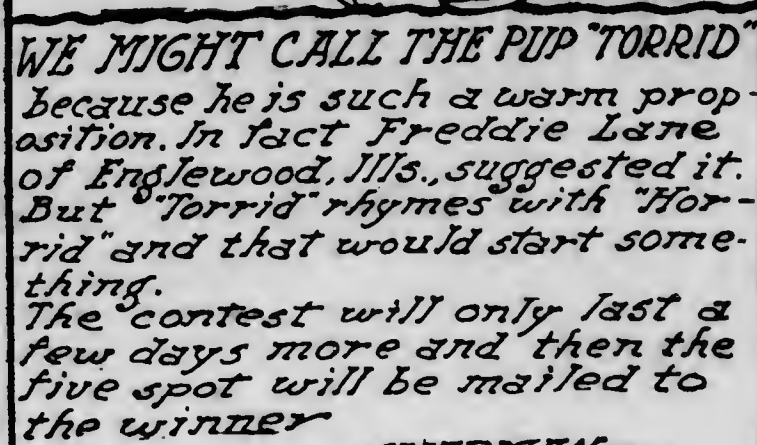 WE MIGHT CALL THE PUP "TORRID"
because he is such a warm prop-
osition. In fact Freddie Lane
of Englewood, Ills., suggested it.
But "Torrid" rhymes with "Hor-
rid" and that would start some-
thing.
The contest will only last a
few days more and then the
five spot will be mailed to
the winner